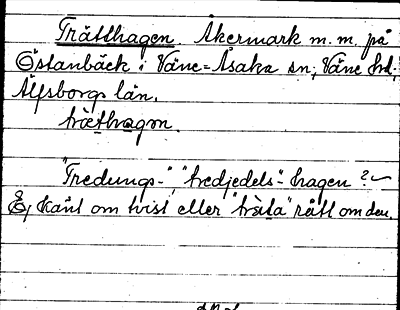 Trätthagen Åkermark m.m. på
Östanbäck i Väne-Åsaka sn, Väne hd,
Älfsborgs län.
træthagεn.
"Tredungs-", "tredjedels"-hagen?
Ej känt om tvist eller "träta" rått om den.